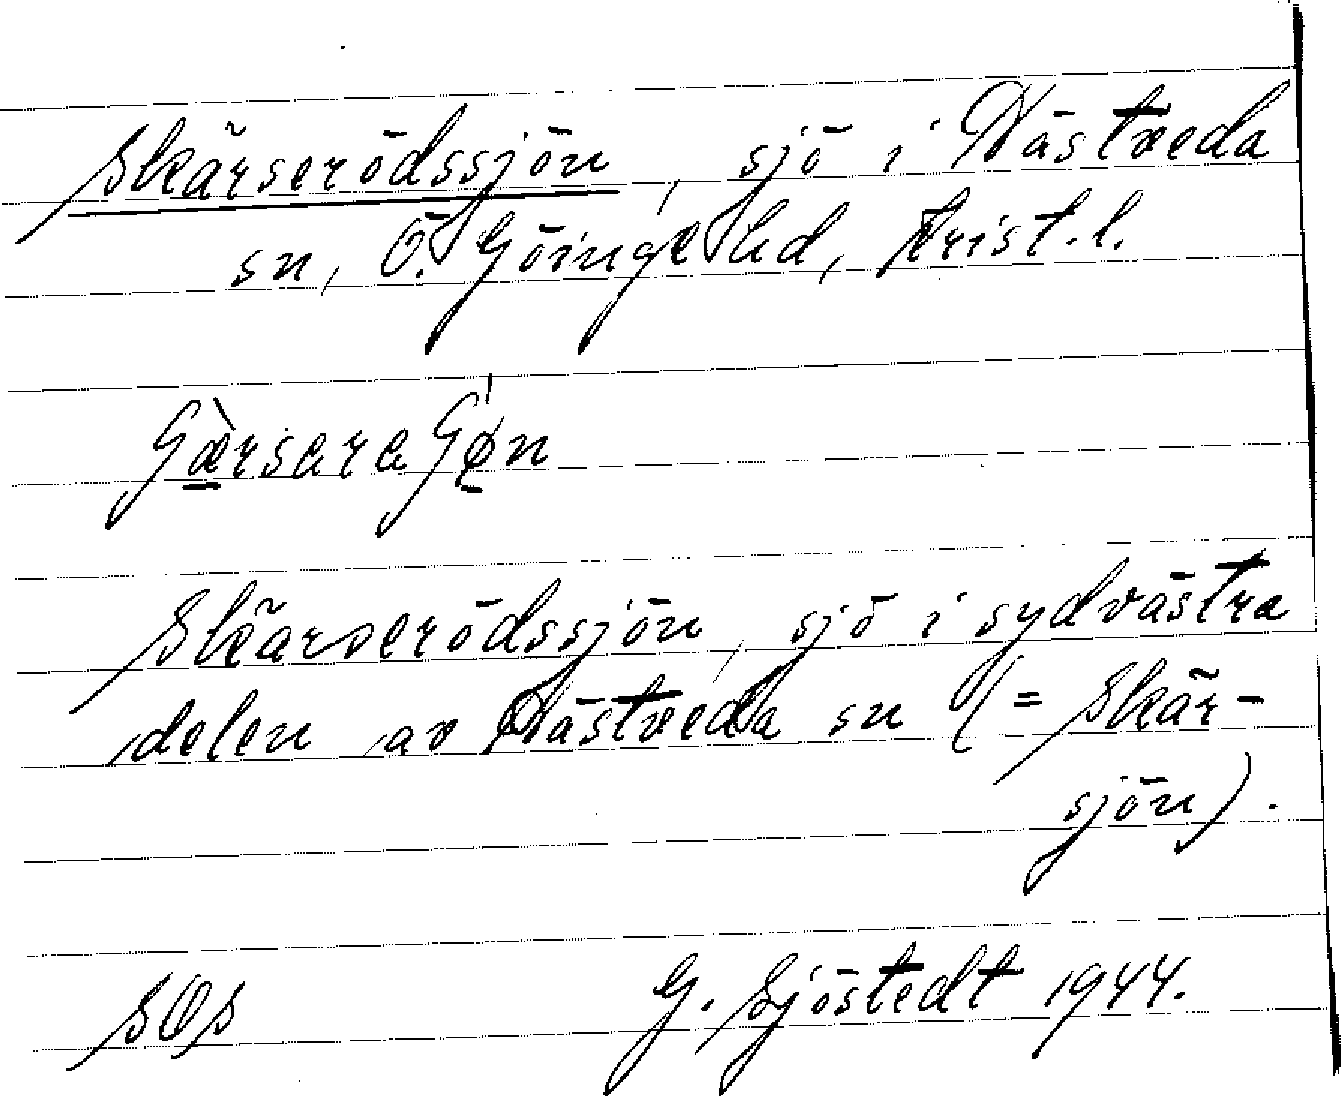 Skärserödssjön, sjö i Västveda
sn, Ö. Göinge hd, Krist. l.
Skärserödssjön, sjö i sydvästra
delen av Västveda sn (= Skär-
sjön).
SOS G. Sjöstedt 1944.